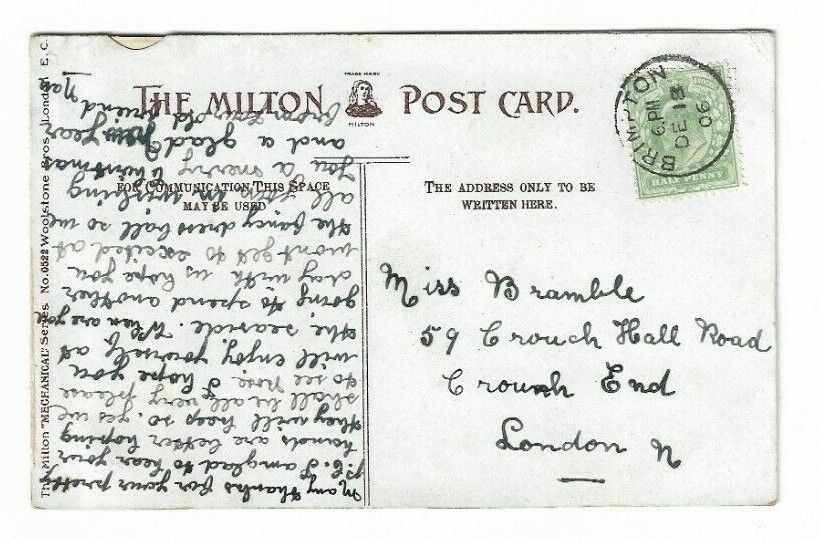 THE MILTON POST CARD.
TRADE MARK
MILTON
FOR COMMUNICATION THIS SPACE
MAY BE USED
THE ADDRESS ONLY TO BE
WRITTEN HERE.
BRIMPTON
6. PM
DE 13
06
HALFPENNY
The Milton "MECHANICAL" Series No. 0522 Woolstone Bros. London E. C.
Miss Bramble
59 Crouch Hall Road
Crouch End
London N
Many thanks for your pretty
p.c. I am glad to hear your
hands are better hoping
they will keep so. yes we
shall be all very please
to see I hope you
will enjoy yourself at
the seaside. When are you
going to spend another
day with us hope you
wont get to excited at
the fancy dress ball so we
all join in wishing
you a merry Xmas
and a glad New year
from your old friend